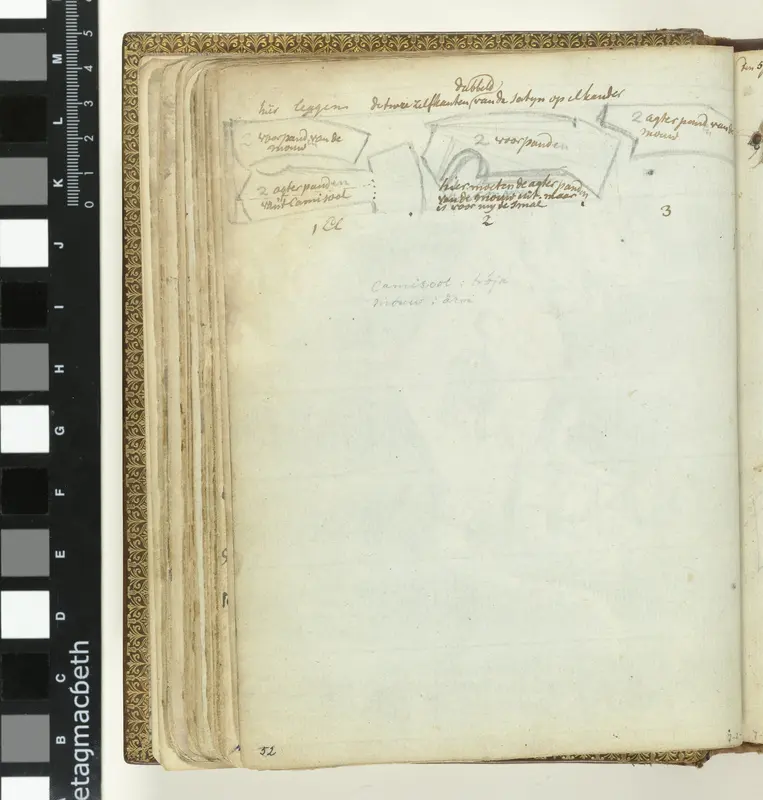 dubbeld
hier leggen de twee zelfkanten van de satyn op elkander
2 voorpand van de
mouw
2 voorpanden
2 agterpand van de
mouw
2 agterpanden
van't Camisool
hier moeten de agterpanden
van de mouw uit. maar
is voor my de smal
1 El
2
3
Camisool :
mouw :
52
0 1 2 3 4 5
M
L
K
J
I
H
G
F
E
D
C
B
etagmacbeth